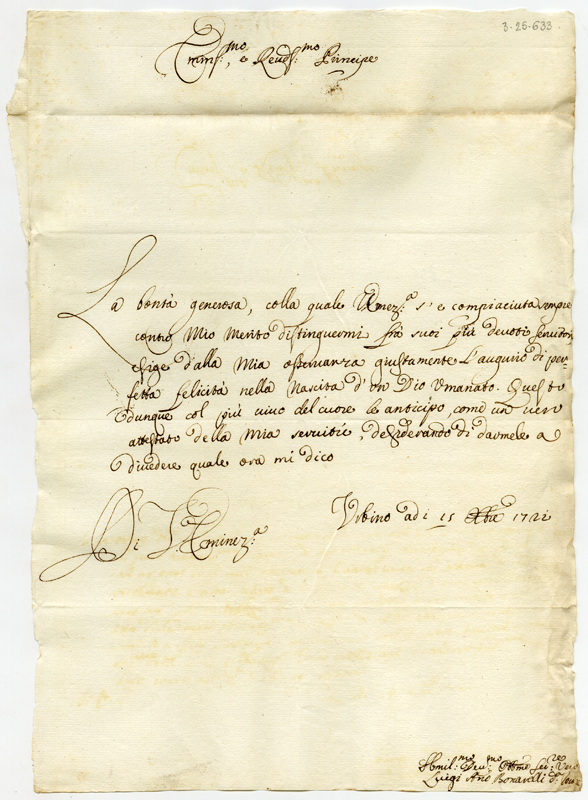 3-25-633
Emm:mo, e Reud:mo Principe
La bontà generosa, colla quale V Emez:a s'è compiaciuta sempre
contro Mio Merito distinguermi frà suoi più devoti servitori
esige d'alla Mia osservanza giustamente L'augurio di per=
fetta felicità nella Nascita d'un Dio Umanato. Questo
dunque col più vivo del cuore le anticipo, come un vero
attestato della Mia servitù, desiderando di darmele a
divedere quale ora mi dico
Di V. Eminez:a
Urbino adi 15 Xbre 1721
Hmil:mo Deu:mo Ser:re
Luigi Anto Bonaveli